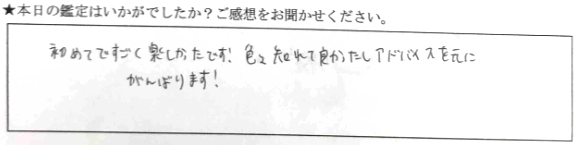 ★本日の鑑定はいかがでしたか？ご感想をお聞かせください。
初めてですごく楽しかったです！色々知れて良かったしアドバイスを元に
がんばります！